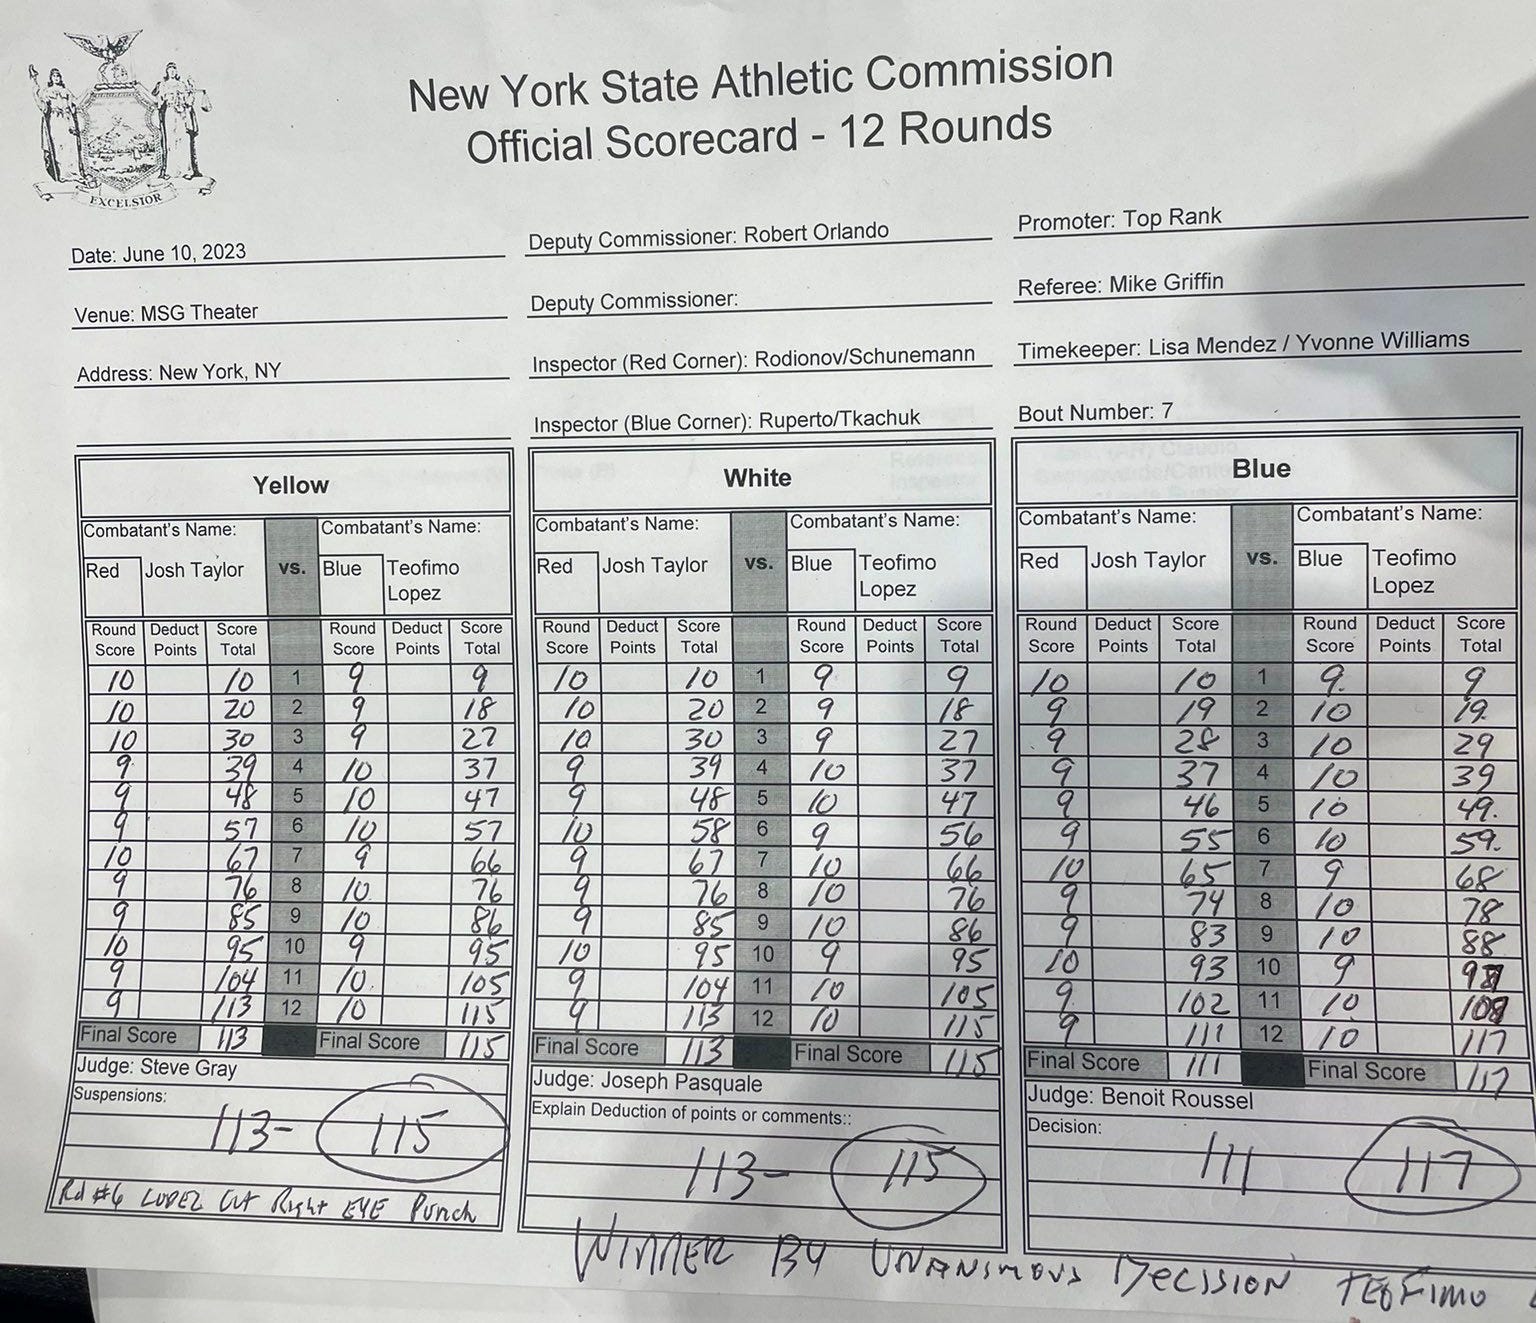 New York State Athletic Commission
Official Scorecard - 12 Rounds
EXCELSIOR
Date: June 10, 2023 Deputy Commissioner: Robert Orlando Promoter: Top Rank
Venue: MSG Theater Deputy Commissioner: Referee: Mike Griffin
Address: New York, NY Inspector (Red Corner): Rodionov/Schunemann Timekeeper: Lisa Mendez / Yvonne Williams
Inspector (Blue Corner): Ruperto/Tkachuk Bout Number: 7
Yellow
Combatant's Name: Combatant's Name:
Red Josh Taylor vs. Blue Teofimo
Lopez
Round Deduct Score Round Deduct Score
Score Points Total Score Points Total
10 10 1 9 9
10 20 2 9 18
10 30 3 9 27
9 39 4 10 37
9 48 5 10 47
9 57 6 10 57
10 67 7 9 66
9 76 8 10 76
9 85 9 10 86
10 95 10 9 95
9 104 11 10 105
9 113 12 10 115
Final Score 113 Final Score 115
Judge: Steve Gray
Suspensions:
113- 115
Rd #6 LOPEZ CUT Right EYE Punch
White
Combatant's Name: Combatant's Name:
Red Josh Taylor vs. Blue Teofimo
Lopez
Round Deduct Score Round Deduct Score
Score Points Total Score Points Total
10 10 1 9 9
10 20 2 9 18
10 30 3 9 27
9 39 4 10 37
9 48 5 10 47
10 58 6 9 56
9 67 7 10 66
9 76 8 10 76
9 85 9 10 86
10 95 10 9 95
9 104 11 10 105
9 113 12 10 115
Final Score 113 Final Score 115
Judge: Joseph Pasquale
Explain Deduction of points or comments::
113- 115
Blue
Combatant's Name: Combatant's Name:
Red Josh Taylor vs. Blue Teofimo
Lopez
Round Deduct Score Round Deduct Score
Score Points Total Score Points Total
10 10 1 9 9
9 19 2 10 19
9 28 3 10 29
9 37 4 10 39
9 46 5 10 49
9 55 6 10 59
10 65 7 9 68
9 74 8 10 78
9 83 9 10 88
10 93 10 9 97
9 102 11 10 107
9 111 12 10 117
Final Score 111 Final Score 117
Judge: Benoit Roussel
Decision:
111 117
WINNER BY UNANIMOUS DECISION TEOFIMO